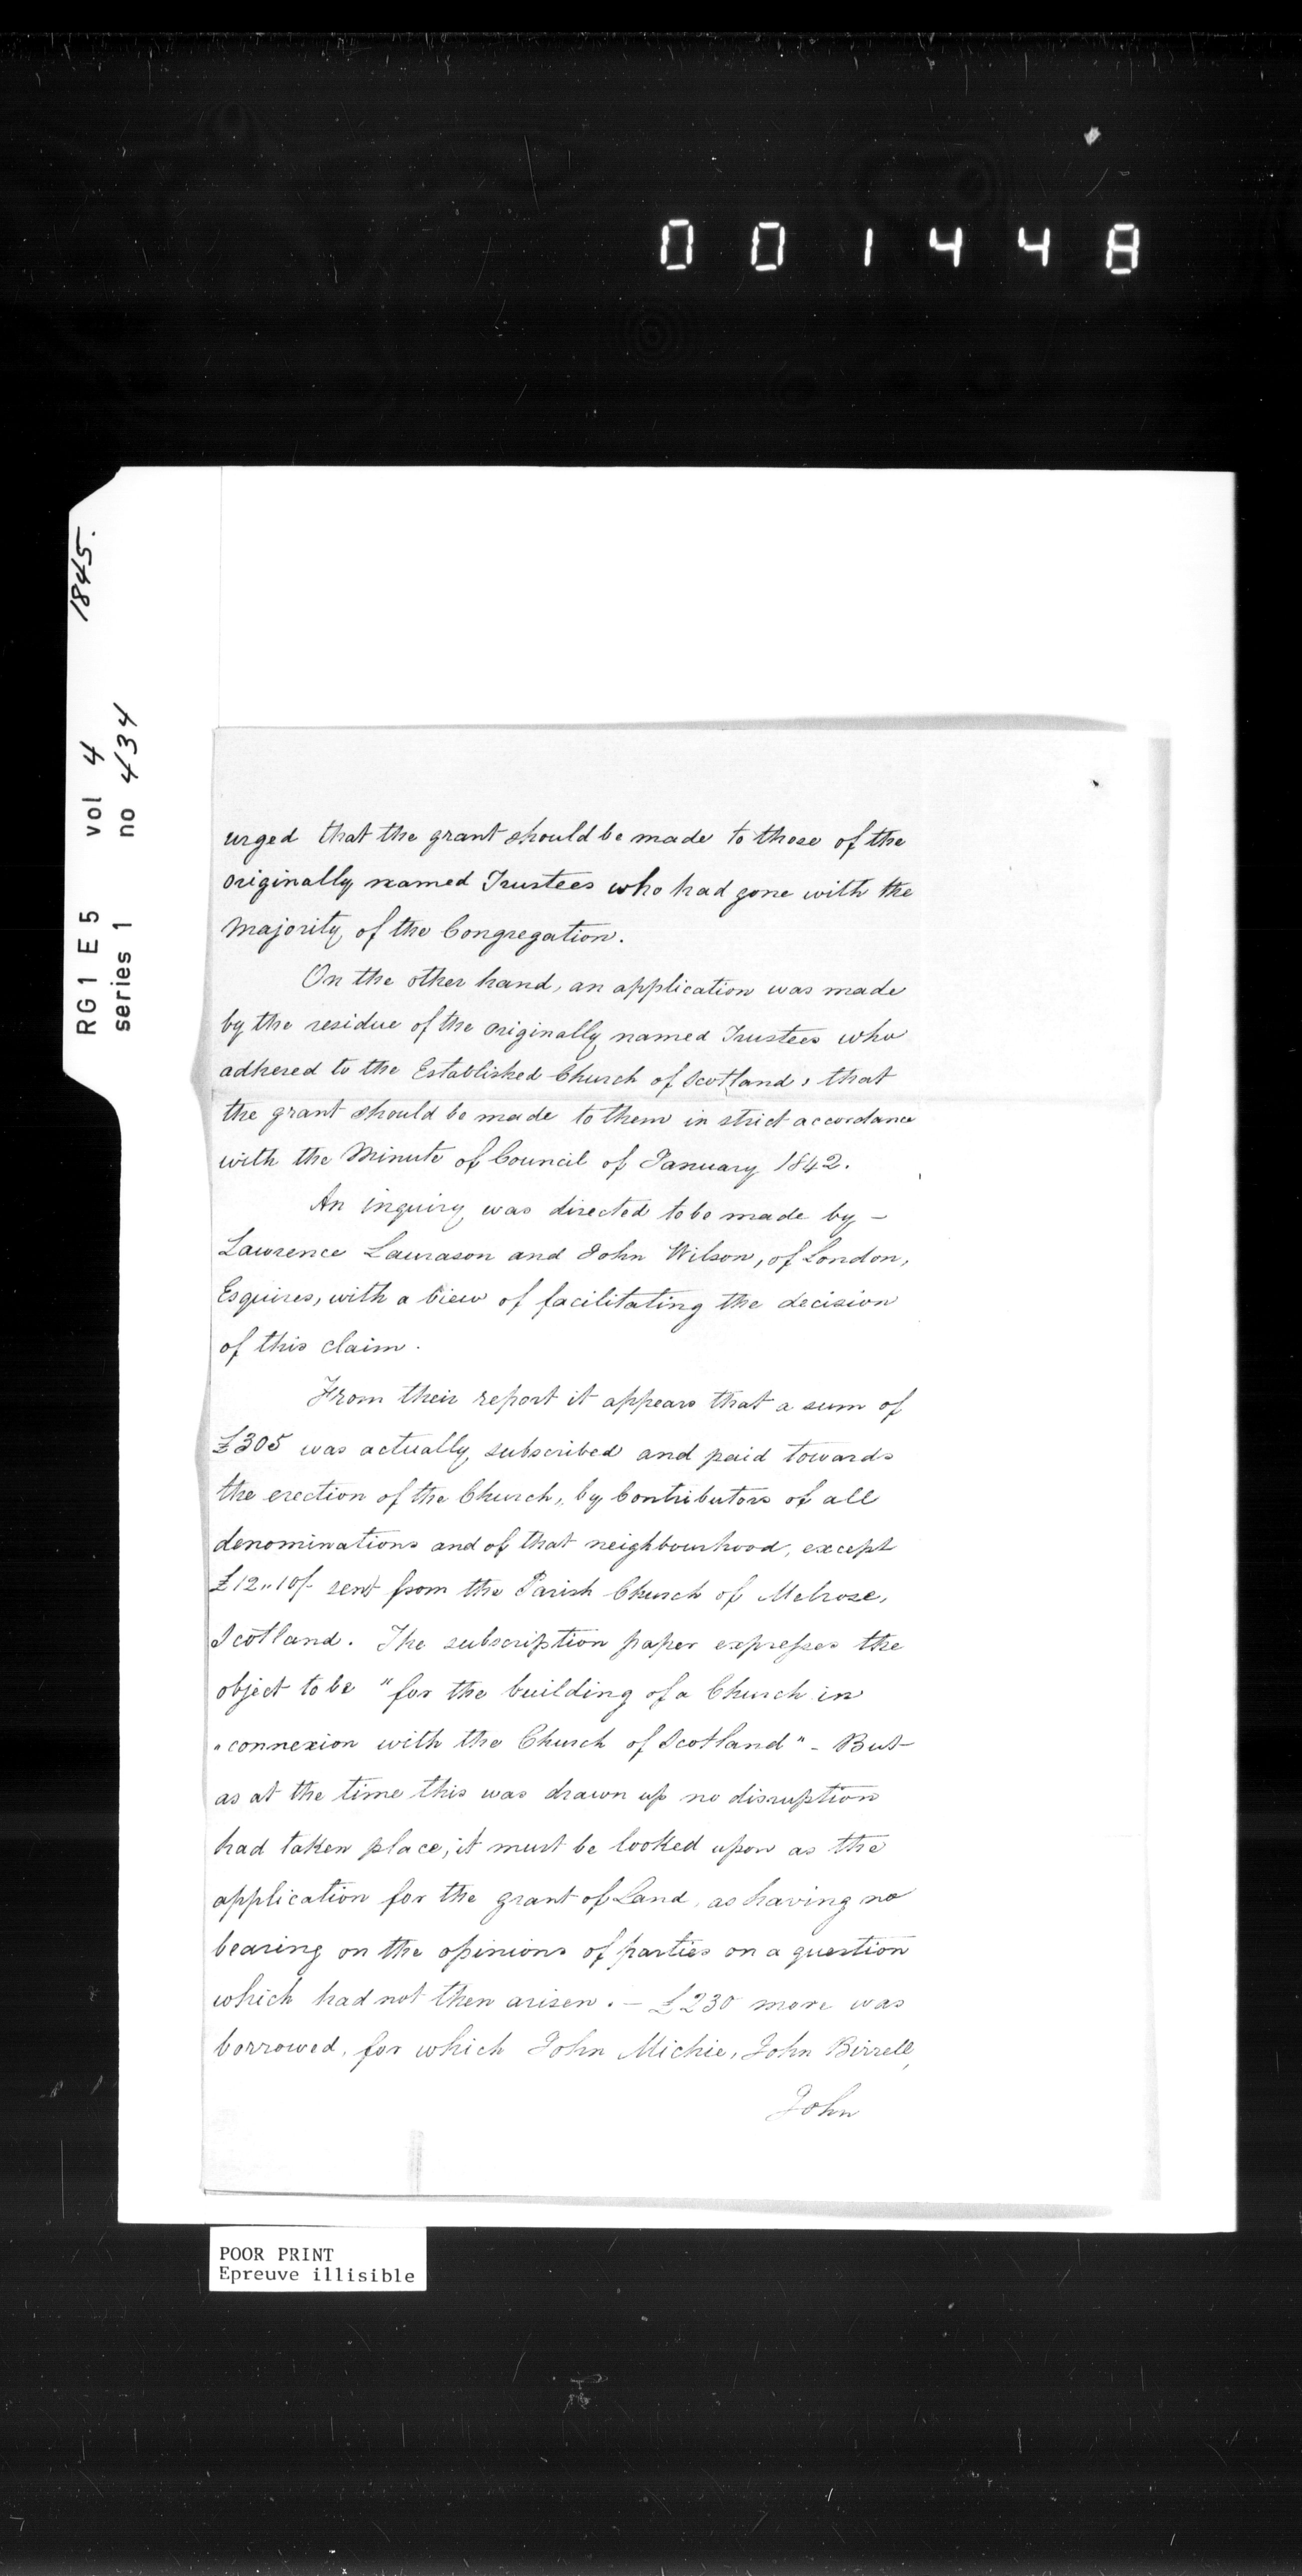 001448
1845.
RG 1 E 5 vol 4
series 1 no 434
urged that the grant should be made to those of the
originally named Trustees who had gone with the
Majority of the Congregation.
On the other hand, an application was made
by the residue of the originally named Trustees who
adhered to the Established Church of Scotland, that
the grant should be made to them in strict accordance
with the Minute of Council of January 1842.
An inquiry was directed to be made by -
Lawrence Laurason and John Wilson, of London,
Esquires, with a view of facilitating the decision
of this claim.
From their report it appears that a sum of
£305 was actually subscribed and paid towards
the erection of the Church, by Contributors of all
denominations and of that neighbourhood, except
£12,,10/- sent from the Parish Church of Melrose,
Scotland. The subscription paper expresses the
object to be "for the building of a Church in
"connexion with the Church of Scotland" - But
as at the time this was drawn up no disruption
had taken place, it must be looked upon as the
application for the grant of Land, as having no
bearing on the opinions of parties on a question
which had not then arisen. - £230 more was
borrowed, for which John Michie, John Birrell,
John
POOR PRINT
Epreuve illisible